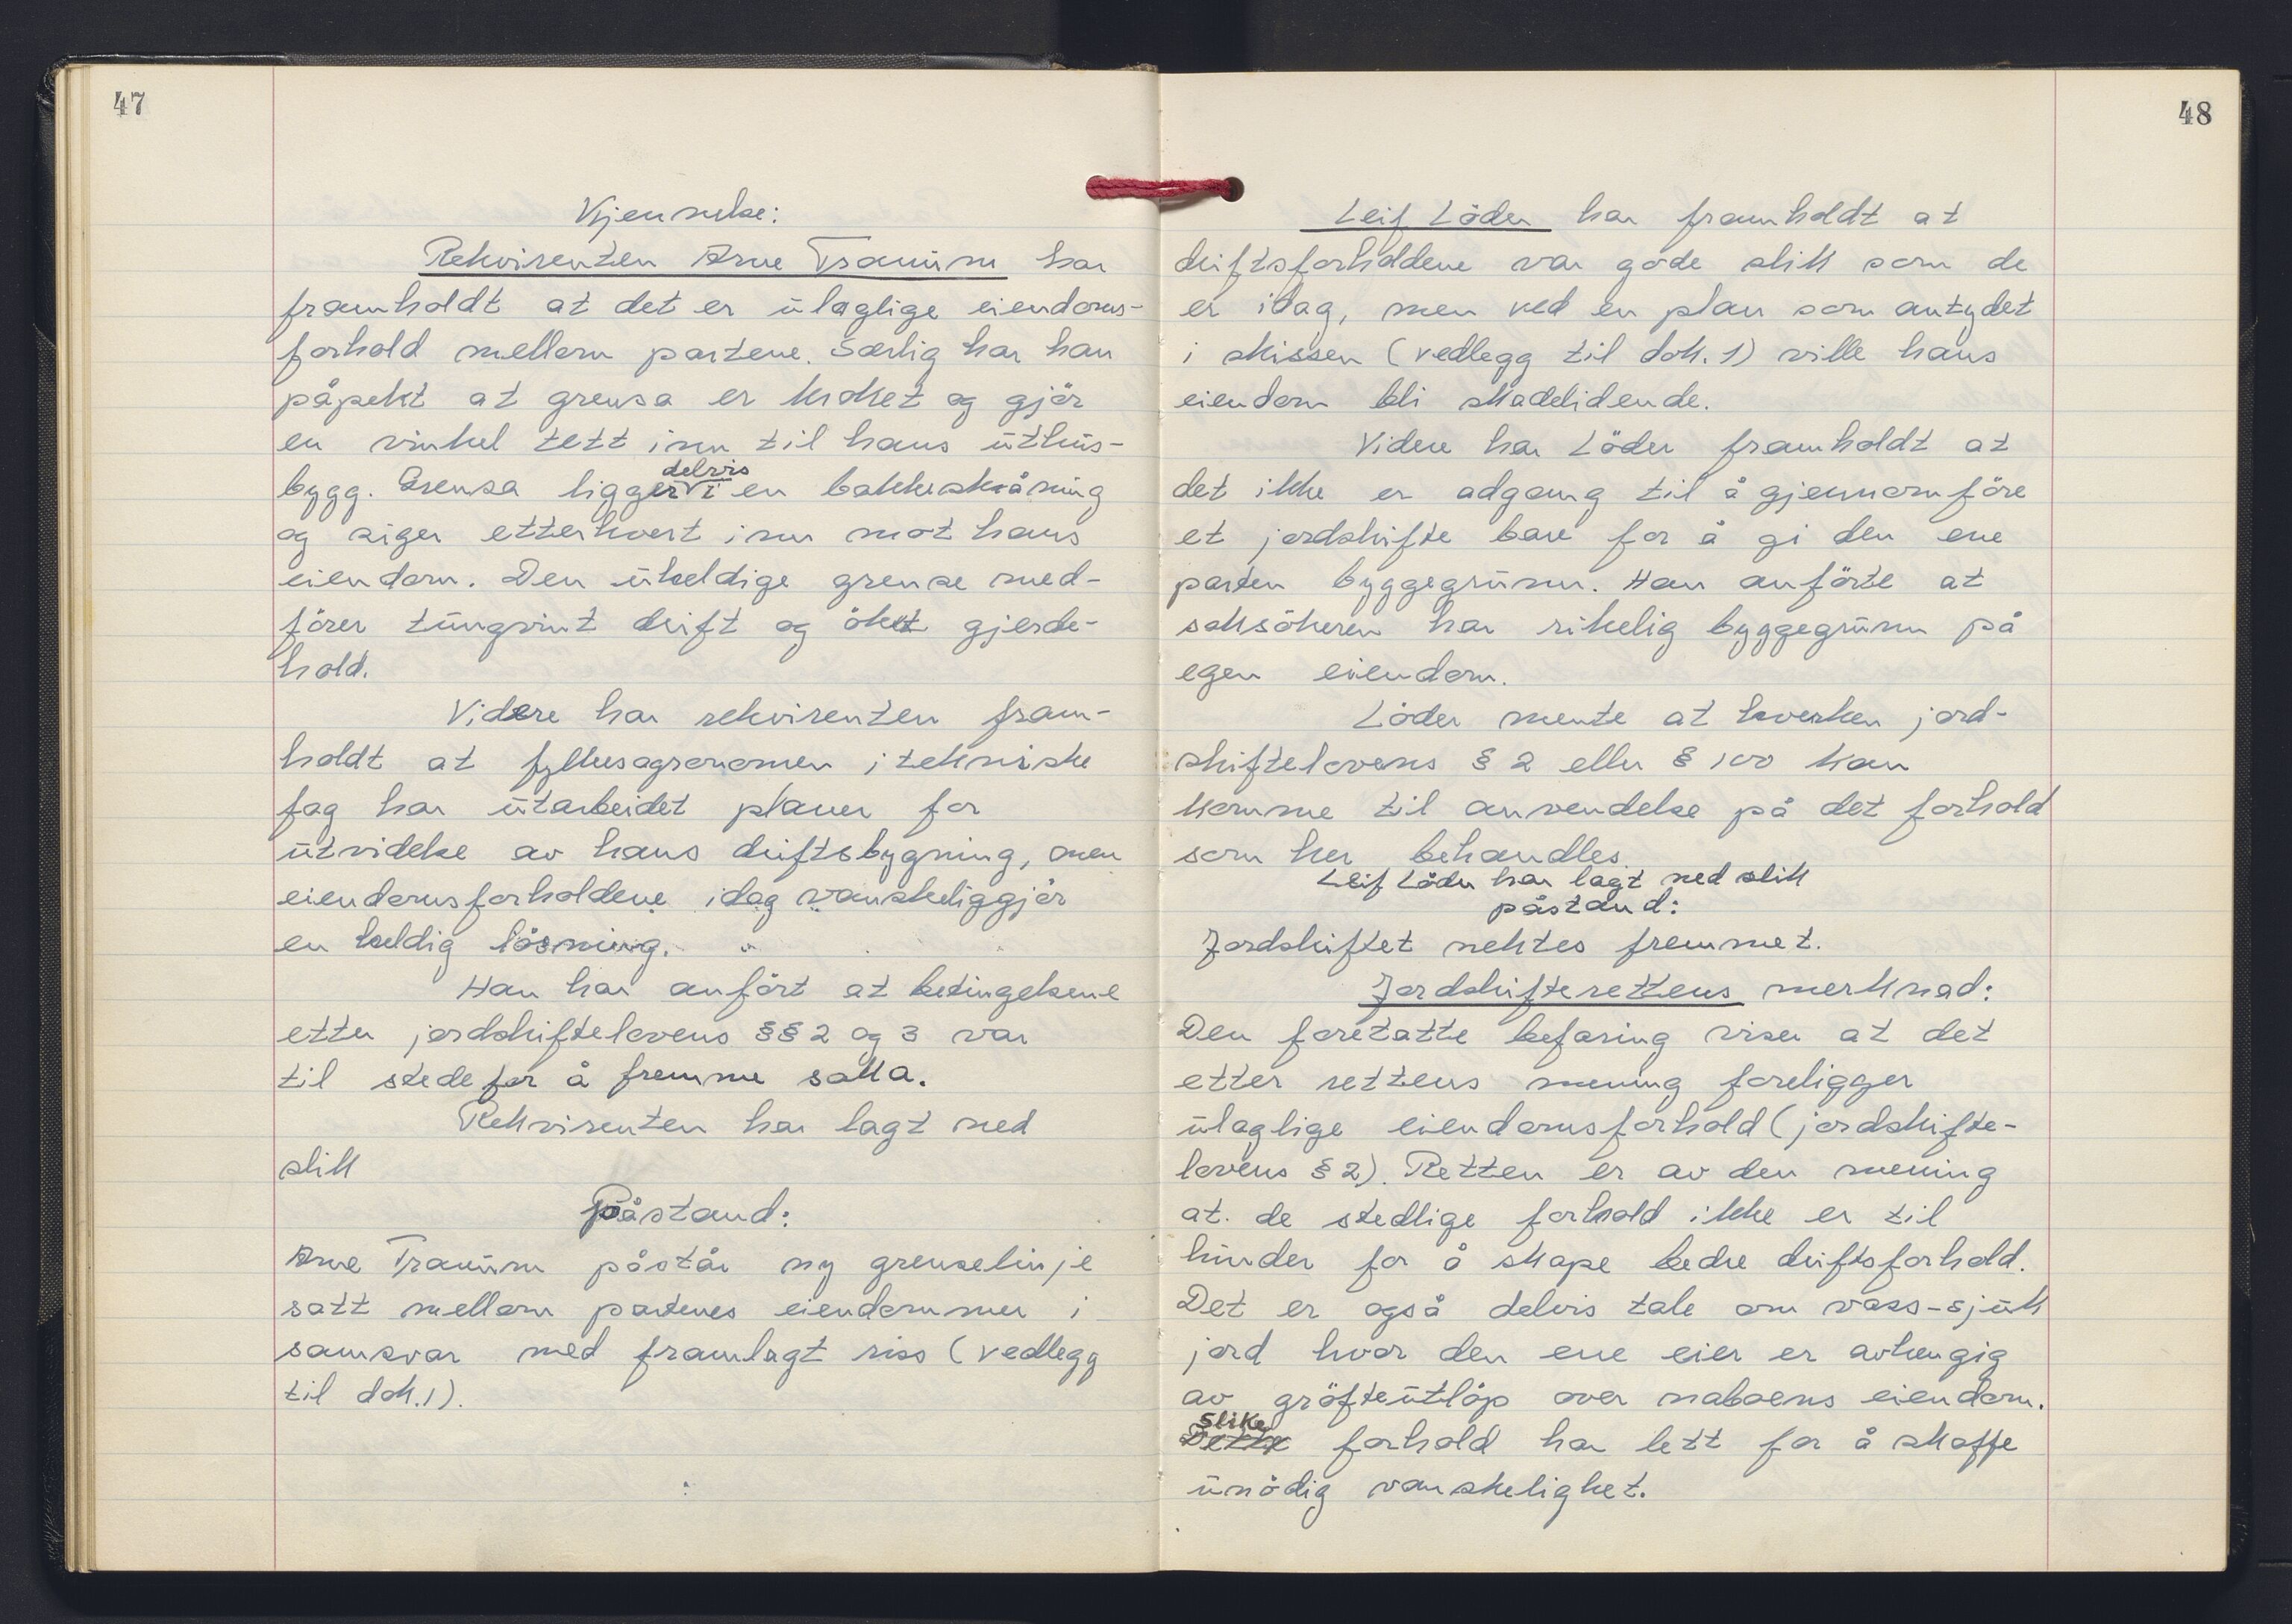 47
Kjennelse:
Rekvirenten Arne Traunm har
framholdt at det er ulaglige eiendoms-
forhold mellom partene. Særlig har han
påpekt at grensa er kroket og gjör
en vinkel tett inn til hans uthus-
bygg. Grensa ligger delvis i en bakkeskråning
og siger etterhvert inn mot hans
eiendom. Den uheldige grense med-
förer tungvint drift og öket gjerde-
hold.
Videre har rekvirenten fram-
holdt at fylkesagronomen i tekniske
fag har utarbeidet planer for
utvidelse av hans driftsbygning, men
eiendomsforholdene idag vanskeliggjör
en heldig lösning.
Han har anfört at betingelsene
etter jordskiftelovens §§ 2 og 3 var
til stede for å fremme saka.
Rekvirenten har lagt ned
slik
Påstand:
Arne Traunm påstår ny grenselinje
satt mellom partenes eiendommer i
samsvar med framlagt riss (vedlegg
til dok.1).
48
Leif Löder har framholdt at
driftsforholdene var gode slik som de
er idag, men ved en plan som antydet
i skissen (vedlegg til dok. 1) ville hans
eiendom bli skadelidende.
Videre har Löder framholdt at
det ikke er adgang til å gjennomföre
et jordskifte bare for å gi den ene
parten byggegrunn. Han anförte at
saksökeren har rikelig byggegrunn på
egen eiendom.
Löder mente at hverken jord-
skiftelovens § 2 eller § 100 kan
komme til anvendelse på det forhold
som her behandles.
Leif Löder har lagt ned slik
påstand:
Jordskiftet nektes fremmet.
Jordskifterettens merknad:
Den foretatte befaring viser at det
etter rettens mening foreligger
ulaglige eiendomsforhold (jordskifte-
lovens § 2). Retten er av den mening
at de stedlige forhold ikke er til
hinder for å skape bedre driftsforhold.
Det er også delvis tale om vass-sjuk
jord hvor den ene eier er avhengig
av gröfteutlöp over naboens eiendom.
Slike
Dette forhold har lett for å skaffe
unödig vanskelighet.